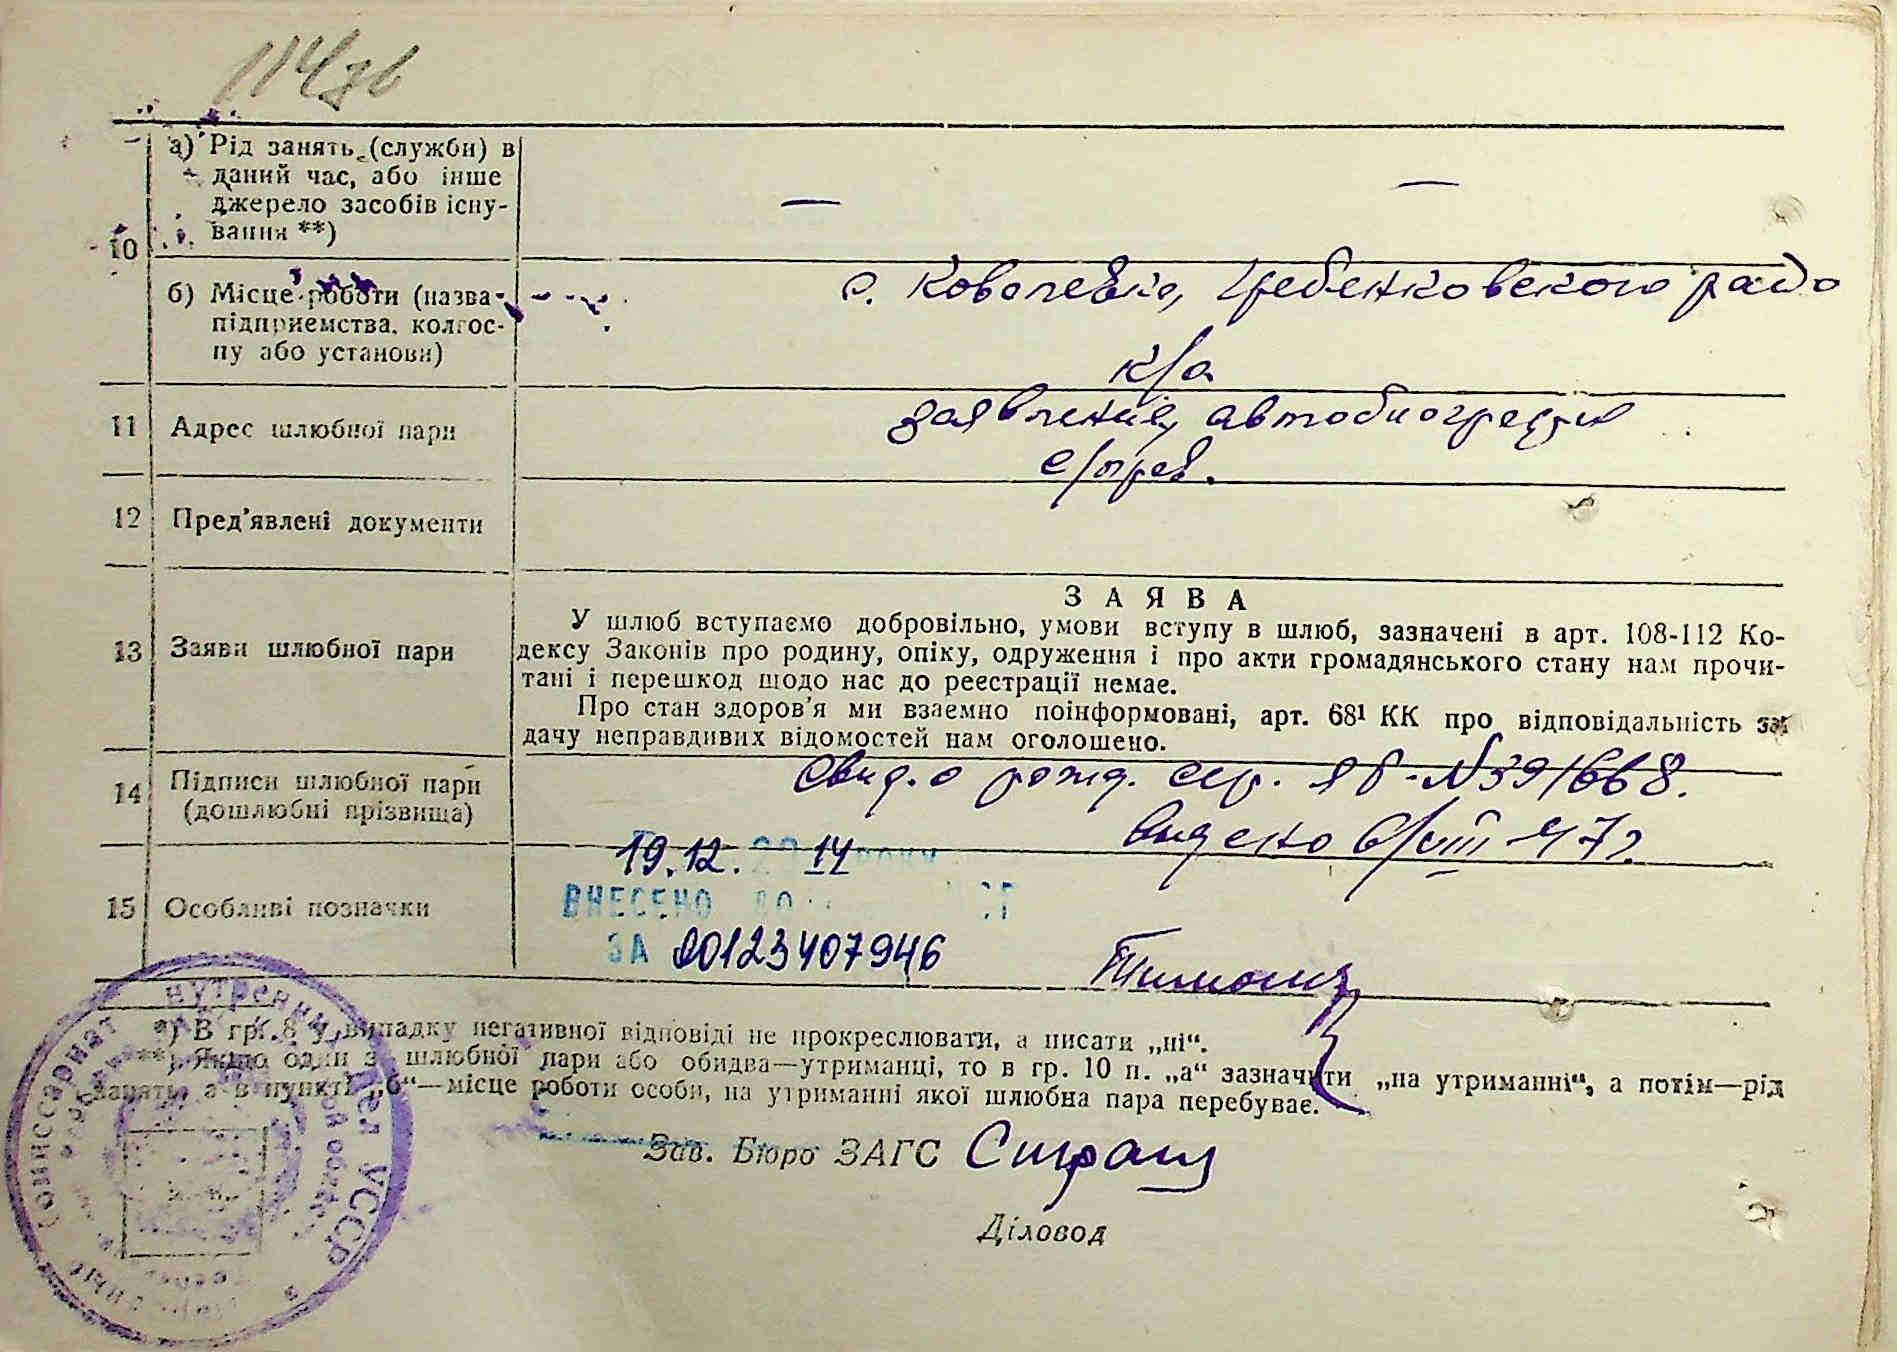 114зв
10
а) Рід занять (служби) в
даний час, або інше
джерело засобів існу-
вання **)
— —
б) Місце роботи (назва
підприємства, колгос-
пу або установи)
с. Ковалевка, Гребенковского райо
к/а
11 Адрес шлюбної пари
заявление, автобиография
с/прав.
12 Пред'явлені документи
13 Заяви шлюбної пари
ЗАЯВА
У шлюб вступаємо добровільно, умови вступу в шлюб, зазначені в арт. 108-112 Ко-
дексу Законів про родину, опіку, одруження і про акти громадянського стану нам прочи-
тані і перешкод щодо нас до реєстрації немає.
Про стан здоров'я ми взаємно поінформовані, арт. 68¹ КК про відповідальність за
дачу неправдивих відомостей нам оголошено.
14 Підписи шлюбної пари
(дошлюбні прізвища)
Свид. о рожд. сер. ЯБ-№391668.
Видено 6/VIII-47г.
15 Особливі позначки
19.12. 2014 РОКУ
ВНЕСЕНО ДО
ЗА 00123407946
*) В гр. 8 у випадку негативної відповіді не прокреслювати, а писати „ні“.
**) Якщо один з шлюбної пари або обидва—утриманці, то в гр. 10 п. „а“ зазначити „на утриманні“, а потім—рід
занять, а в пункті „б“—місце роботи особи, на утриманні якої шлюбна пара перебуває.
Зав. Бюро ЗАГС
Діловод
УССР